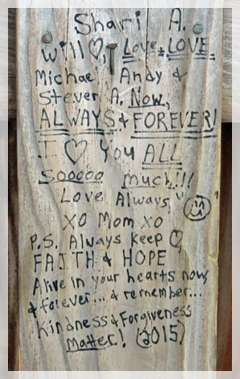 Shari A.
will ♡, Love & LOVE
Michael Andy &
Steven A. Now,
ALWAYS & FOREVER!
I ♡ You ALL
Sooooo Much!!!
Love Always,
XO Mom XO
P.S. Always keep ♡,
FAITH & HOPE
Alive in your hearts now
& forever... & remember...
Kindness & Forgiveness
Matter! (2015)